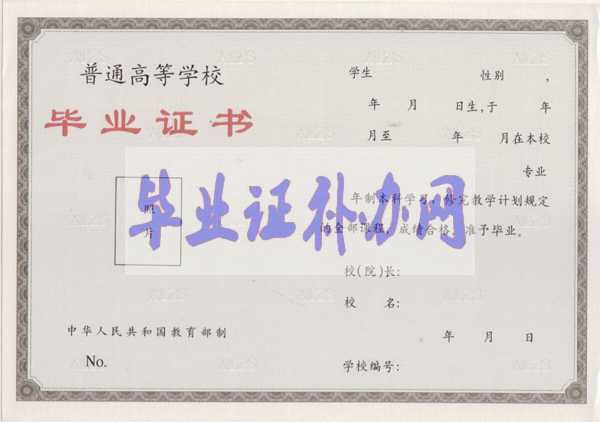 普通高等学校
毕业证书
照
片
中华人民共和国教育部制
No.
学生 性别 ,
年 月 日生,于 年
月至 年 月在本校
专业
年制本科学习,修完教学计划规定
的全部课程,成绩合格,准予毕业。
校(院)长:
校 名:
年 月 日
学校编号:
毕业证补办网